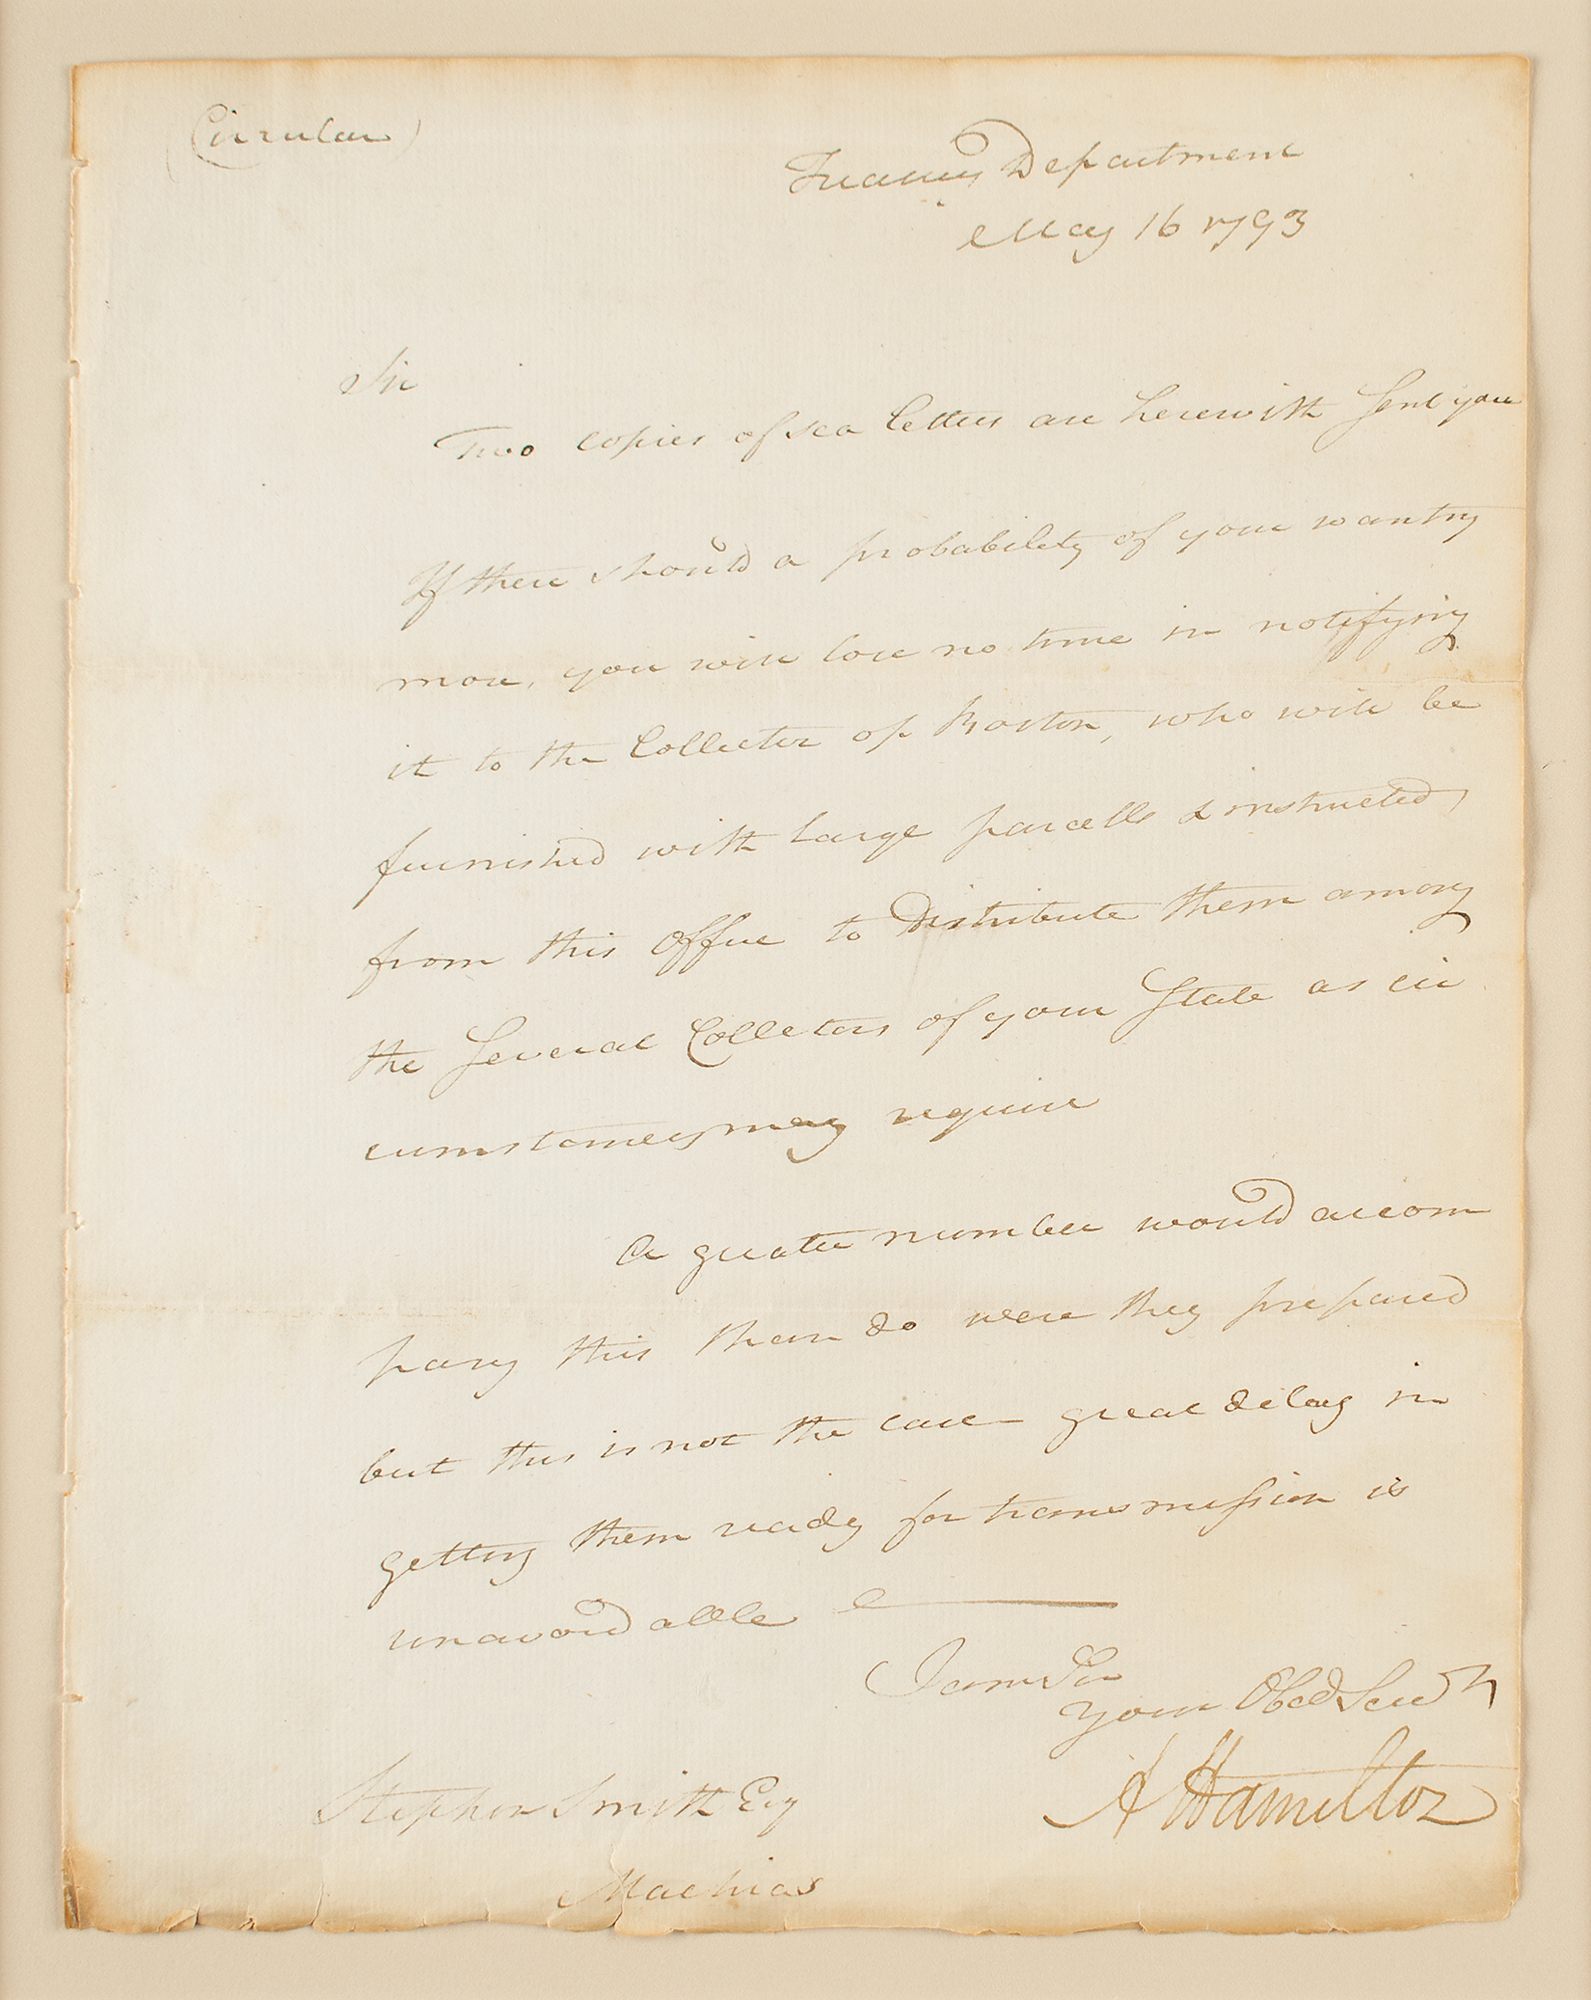 (Circular)
Treasury Department
May 16 1793
Sir
Two copies of sea letters are herewith sent you
If there should a probability of your wanting
more, you will lose no time in notifying
it to the Collector of Boston, who will be
furnished with large parcells & instructed,
from this Office to Distribute them among
the several Collectors of your State as cir
cumstances may require
A greater number would accom
pany this than do were they prepared
but this is not the case great delay in
getting them ready for transmission is
unavoidable
I am Sir
Your Obed Servt
A Hamilton
Stephen Smith Esq
Machias